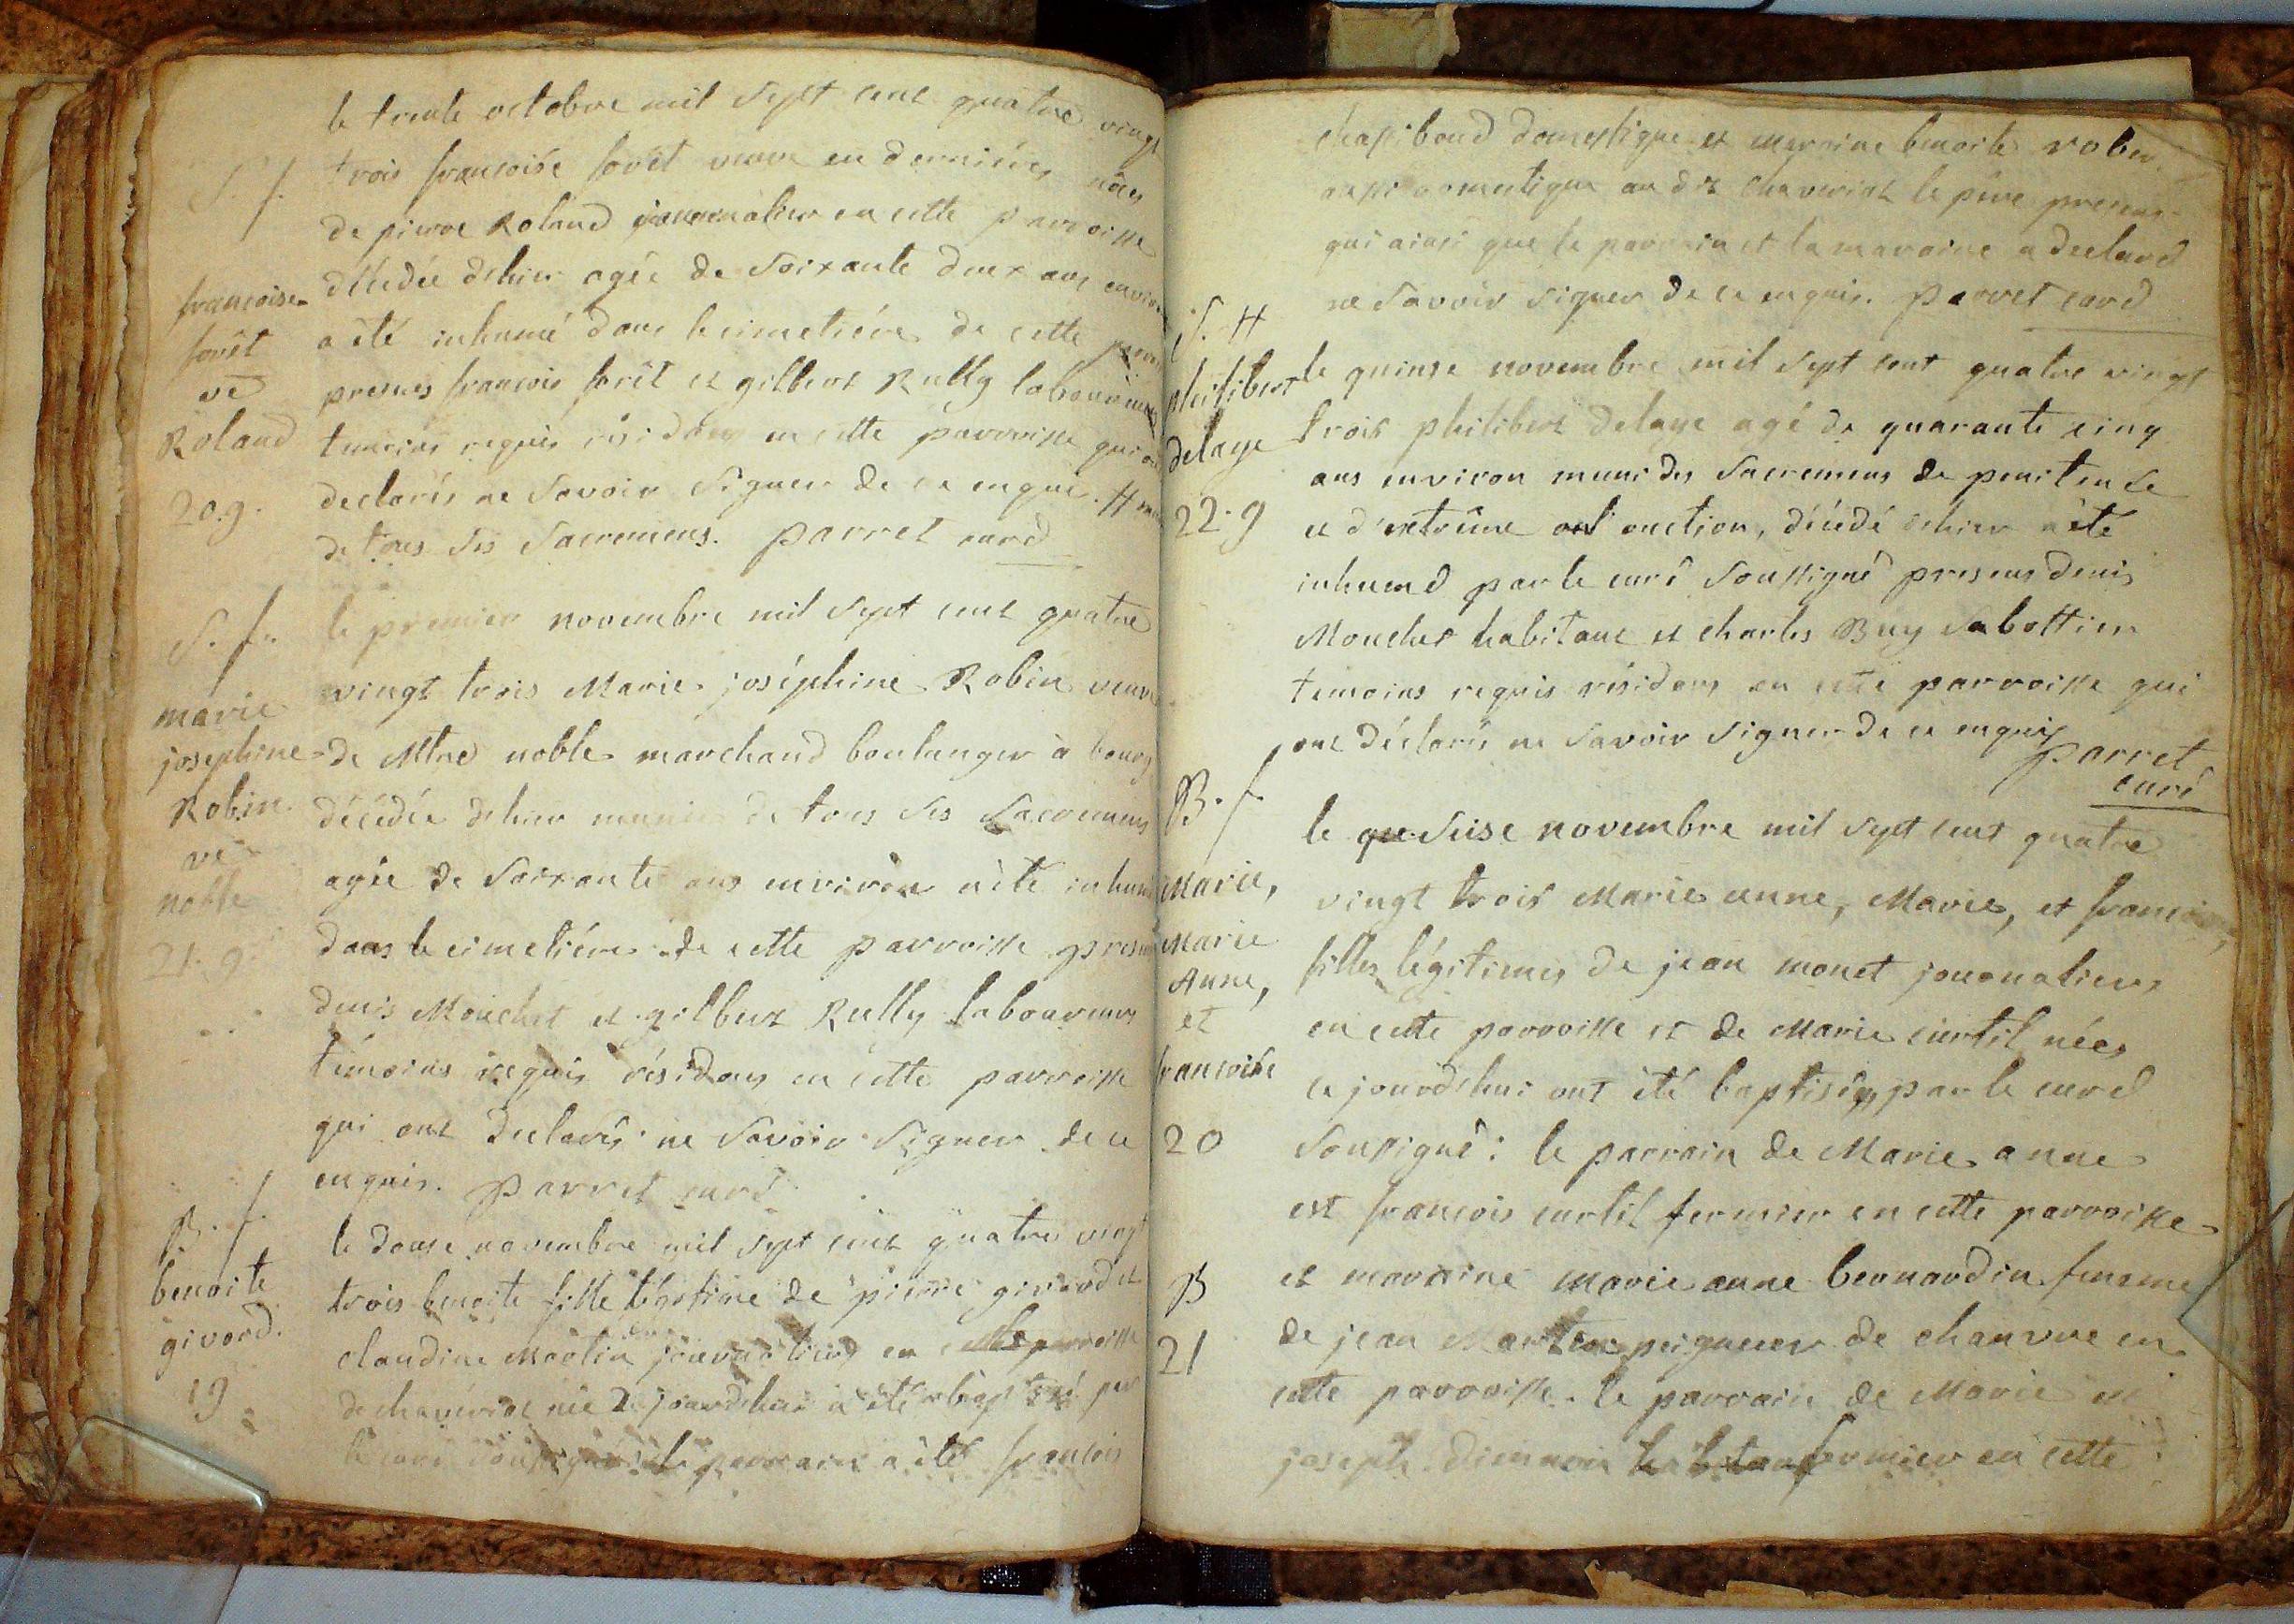 le trente octobre mil sept cent quatre vingt
S. f. trois françoise forêt veuve en derniéres nôces
de pierre Roland journalier en cette parroisse
françoise décédée d'hier agée de soixante deux ans environ
forêt a été inhumé dans le cimetiére de cette
ve presens françois forêt et gilbert Rully laboureurs
Roland temoins requis résidans en cette parroisse qui ont
20.9. declarés ne savoir signer de ce enquis. #
de tous ses sacremens. parret curé
S. f. le premier novembre mil sept cent quatre
marie vingt trois Marie joséphine Robin veuve
josephine de Mtre noble marchand boulanger à bourg
Robin décédée d'hier munie de tous ses sacremens
ve agée de soixante ans environ a été inhumé
noble
21.9. dans le cimetiére de cette parroisse presens
denis Mouchet et gilbert Rully laboureurs
témoins requis résidans en cette parroisse
qui ont declarés ne savoir signer de ce
enquis. parret curé
B. f. le douse novembre mil sept cent quatre vingt
benoite trois benoite fille légitime de pierre givord et
givord. claudine Martin journaliers en
19 de chaveriat née ce jourd'hui a été baptisé par
le curé soussigné: le parrain a été françois
chassiboud domestique et marraine benoite robin
aussi domestique au dit chaveriat le pére present
qui ainsi que le parrain et la marraine a declaré
ne savoir signer de ce enquis. parret curé
S. H
philibert le quinse novembre mil sept cent quatre vingt
delaye trois philibert delaye agé de quarante cinq
ans environ muni des sacremens de penitence
22.9 et d'extrême onction, décédé d'hier a été
inhumé par le curé soussigné presens denis
Mouchet habitant et charles Buy sabottier
temoins requis résidans en cette parroisse qui
ont déclarés ne savoir signer de ce enquis
parret
curé
B. f. le seise novembre mil sept cent quatre
Marie, vingt trois Marie anne, Marie, et françoise,
Marie
Anne, filles légitimes de jean monet journaliers
et en cette parroisse et de Marie curtil nées
francoise ce jourd'hui ont été baptisées par le curé
20 soussigné: le parrain de Marie anne
est françois curtil fermier en cette parroisse
B et marraine marie anne bernardin femme
21 de jean Martin peigneur de chanvre en
cette parroisse. le parrain de Marie
joseph fermier en cette